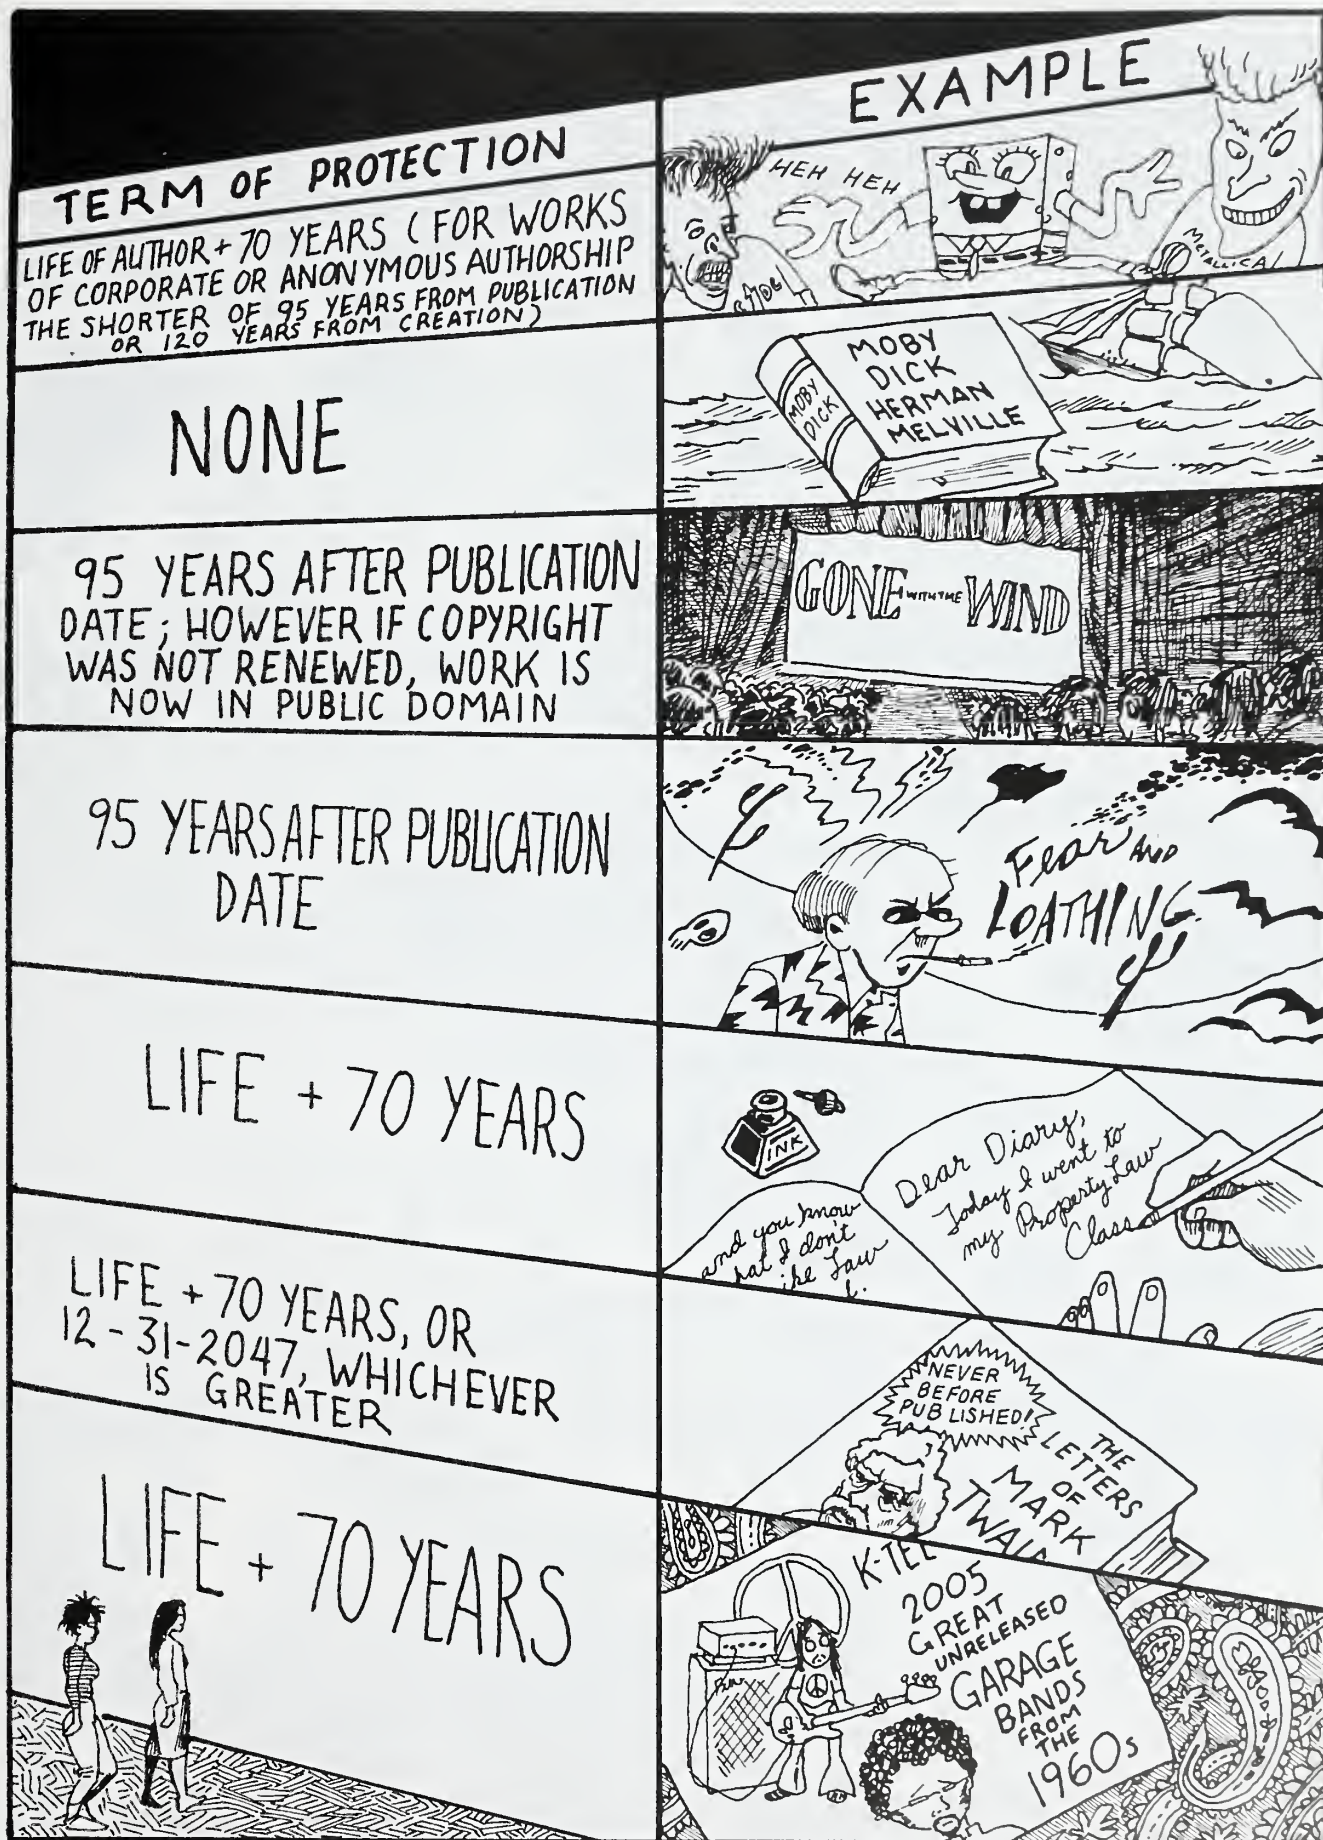 TERM OF PROTECTION
EXAMPLE
LIFE OF AUTHOR + 70 YEARS (FOR WORKS
OF CORPORATE OR ANONYMOUS AUTHORSHIP
THE SHORTER OF 95 YEARS FROM PUBLICATION
OR 120 YEARS FROM CREATION)
HEH HEH
METALLICA
NONE
MOBY
DICK
MOBY
DICK
HERMAN
MELVILLE
95 YEARS AFTER PUBLICATION
DATE; HOWEVER IF COPYRIGHT
WAS NOT RENEWED, WORK IS
NOW IN PUBLIC DOMAIN
GONE WITH THE WIND
95 YEARS AFTER PUBLICATION
DATE
Fear AND
LOATHING
LIFE + 70 YEARS
INK
and you know
hat I don't
ike Law
Dear Diary,
Today I went to
my Property Law
Class
LIFE + 70 YEARS, OR
12-31-2047, WHICHEVER
IS GREATER
NEVER
BEFORE
PUBLISHED!
THE
LETTERS
OF
MARK
TWAIN
LIFE + 70 YEARS
K-TEL
2005
GREAT
UNRELEASED
GARAGE
BANDS
FROM
THE
1960s